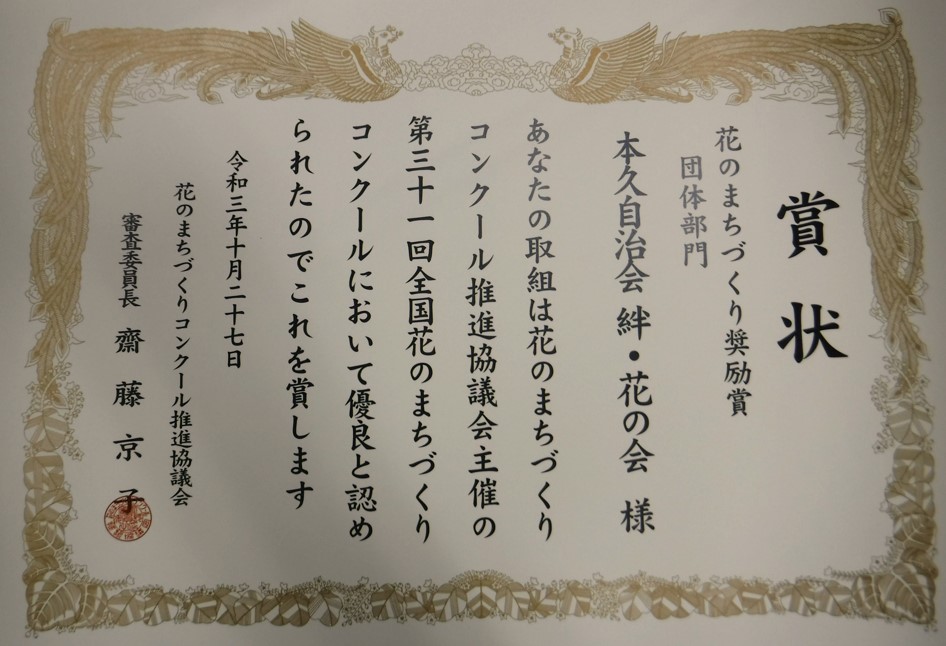 賞状
花のまちづくり奨励賞
団体部門
本久自治会 絆・花の会 様
あなたの取組は花のまちづくり
コンクール推進協議会主催の
第三十一回全国花のまちづくり
コンクールにおいて優良と認め
られたのでこれを賞します
令和三年十月二十七日
花のまちづくりコンクール推進協議会
審査委員長 齋藤京子